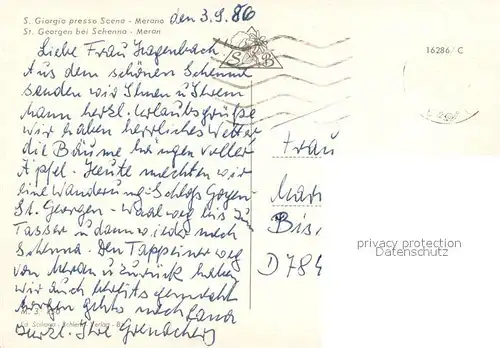 S. Giorgio presso Scena - Merano
St. Georgen bei Schenna - Meran
den 3.9.86
16286/C
S B
Liebe Frau
Aus dem schönen Schenna
senden wir Ihnen u Ihrem
Mann herzl. Urlaubsgrüße
wir haben herrliches Wetter
die Bäume hängen voller
Äpfel. Heute machten wir
eine Wanderung: Schloß Goyen-
St. Georgen - Waalweg bis zu
Tasser u dann wieder nach
Schenna. Den Tappeinerweg
von Meran u zurück haben
wir auch bereits gemacht
Morgen gehts nach
herzl. Ihre
Frau
Bis
D 784
privacy protection
Datenschutz